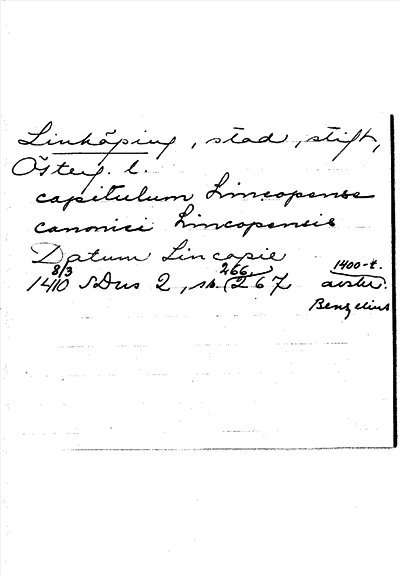 Linköping, stad, stift,
Österg. l.
capitulum Lincopense
canonici Lincopensis
Datum Lincopie
8/3 266 1400-t.
1410 SDns 2, s. (267 avskr.
Benzelius